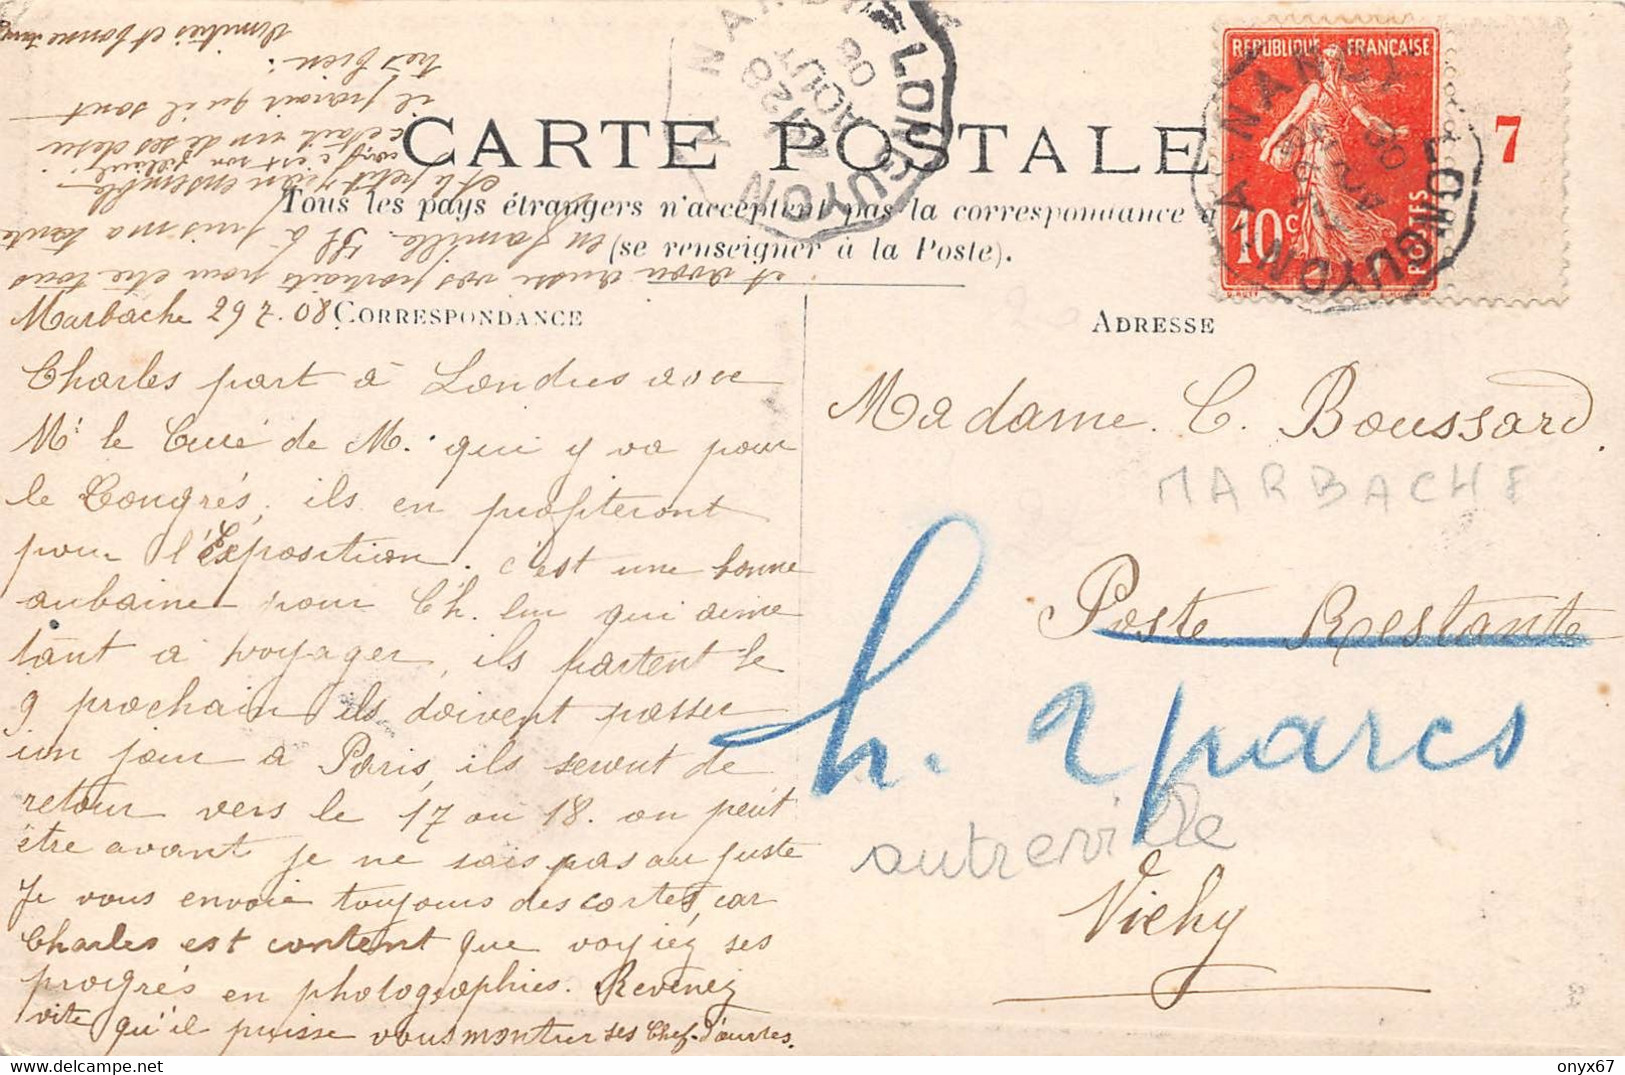 CARTE POSTALE
Tous les pays étrangers n'acceptent pas la correspondance
(se renseigner à la Poste).
CORRESPONDANCE
ADRESSE
RÉPUBLIQUE FRANÇAISE
10c
POSTES
7
NANCY
LONGUYON
AOUT
08
NANCY
LONGUYON
Marbache 29 7. 08
Charles part à Londres avec
Mr le Curé de M. qui y va pour
le Congrés, ils en profiteront
pour l'Exposition. c'est une bonne
aubaine pour Ch. lui qui aime
tant a voyager, ils partent le
9 prochain ils doivent passer
un jour à Paris, ils seront de
retour vers le 17 ou 18. ou peut
être avant je ne sais pas au juste
Je vous envoie toujours des cartes, car
Charles est content que voyiéz ses
progrés en photographies. Revenez
vite qu'il puisse vous montrer ses Chef-d'œuvres.
et avoir aussi vos portraits pour être tous
en famille. Il a puis ma tante
et le petit Jean ensemble
c'était un de ses desirs
il parait qu'il sont
très bien.
Amitiés et bonne
Madame. C. Boussard.
MARBACHE
Poste Restante
h. 2 parcs
autreville
Vichy
onyx67